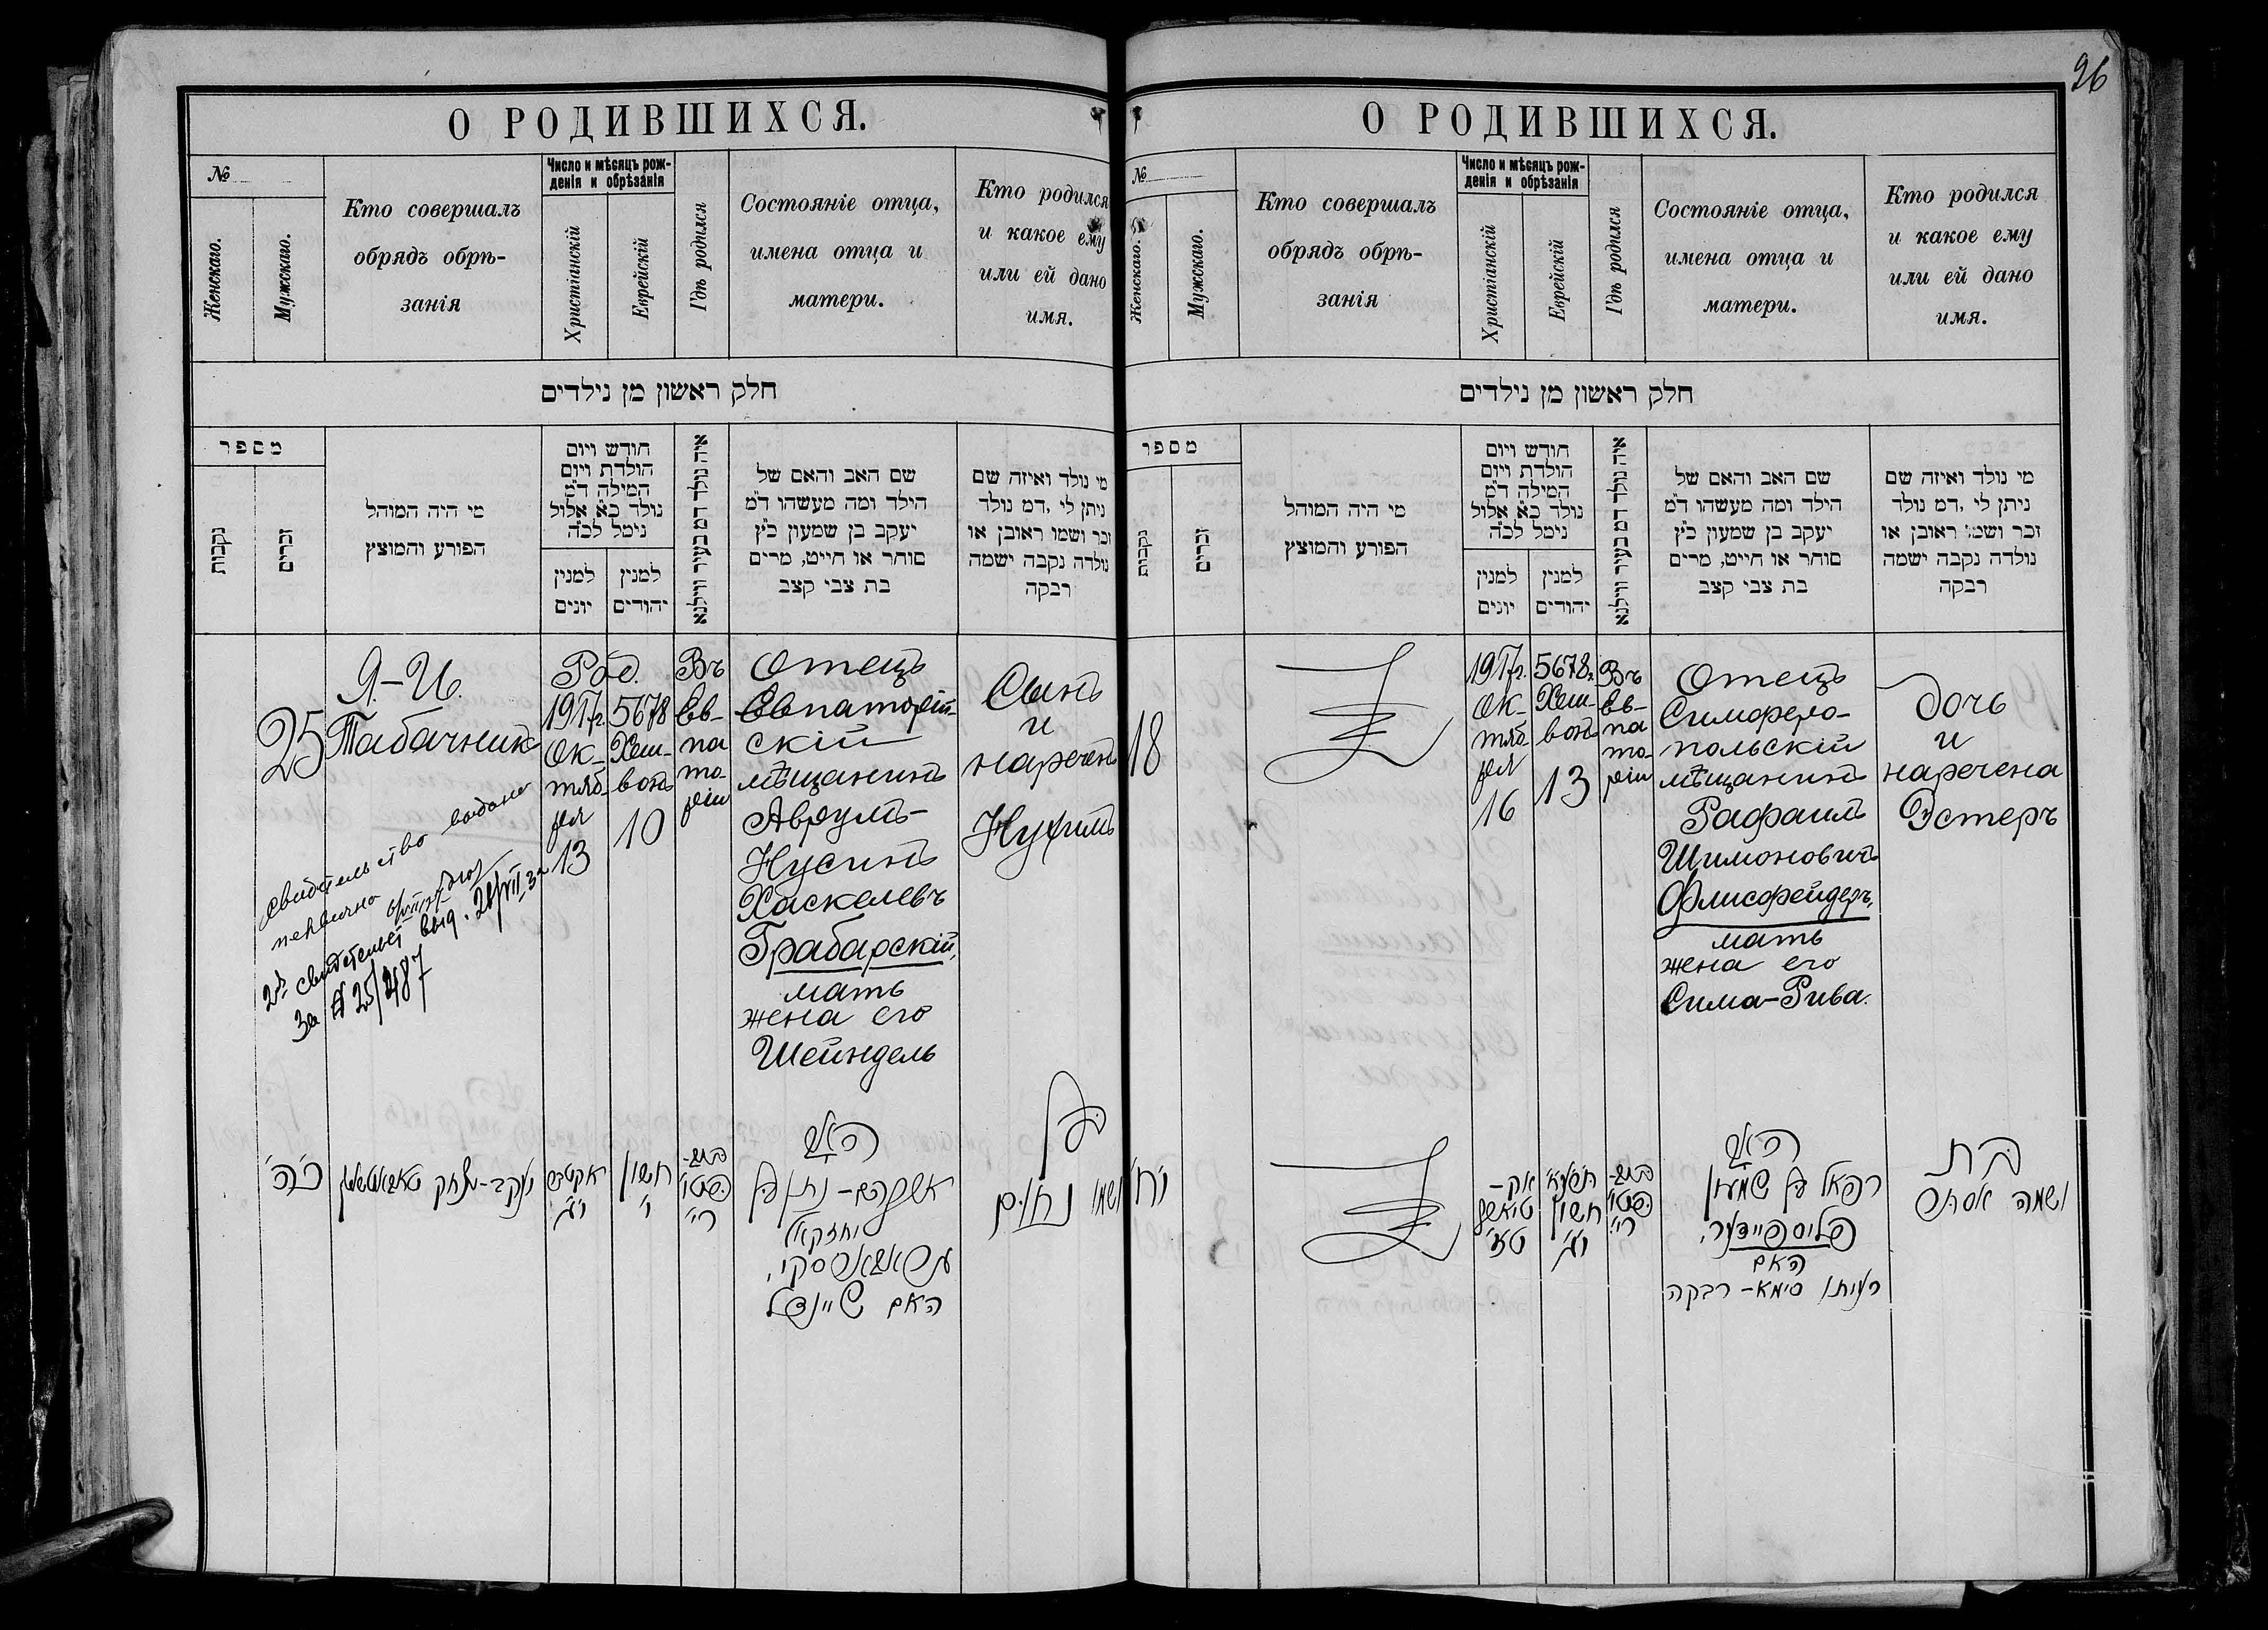 26
О РОДИВШИХСЯ.
№
Женскаго.
Мужскаго.
Кто совершалъ
обрядъ обрѣ-
занія
Число и мѣсяцъ рож-
денія и обрѣзанія
Христіанскій
Еврейскій
Гдѣ родился
Состояніе отца,
имена отца и
матери.
Кто родился
и какое ему
или ей дано
имя.
חלק ראשון מן נילדים
מספר
נקבות
זכרים
מי היה המוהל
הפורע והמוצץ
חודש ויום
הולדת ויום
המילה ד״מ
נולד כ״א אלול
נימל לכ״ה
למנין
יונים
למנין
יהודים
איה נולד דמ בעיר ווילנא
שם האב והאם של
הילד ומה מעשהו ד״מ
יעקב בן שמעון כ״ץ
סוחר או חייט, מרים
בת צבי קצב
מי נולד ואיזה שם
ניתן לי, דמ נולד
זכר ושמו ראובן או
נולדה נקבה ישמה
רבקה
25
Я.-И.
Табачникъ
Свидѣтельство выдано
2е свидетельст выд. 21/VII 32
За № 25/487
Род.
1917г.
Ок-
тяб-
ря
13
5678
Хеш-
вонъ
10
Въ
Ев-
па
то-
ріи
Отецъ
Евпаторій-
скій
мѣщанинъ
Аврумъ-
Нусинъ
Хаскелевъ
Грабарскій,
мать
жена его
Шейндель
Сынъ
и
нареченъ
Нухимъ
כ״ה
יעקב-יצחק
חשון
י׳
האב
אברהם-נתן בן
יחזקאל
האם שיינדל
בן
ושמו נחום
О РОДИВШИХСЯ.
№
Женскаго.
Мужскаго.
Кто совершалъ
обрядъ обрѣ-
занія
Число и мѣсяцъ рож-
денія и обрѣзанія
Христіанскій
Еврейскій
Гдѣ родился
Состояніе отца,
имена отца и
матери.
Кто родился
и какое ему
или ей дано
имя.
חלק ראשון מן נילדים
מספר
נקבות
זכרים
מי היה המוהל
הפורע והמוצץ
חודש ויום
הולדת ויום
המילה ד״מ
נולד כ״א אלול
נימל לכ״ה
למנין
יונים
למנין
יהודים
איה נולד דמ בעיר ווילנא
שם האב והאם של
הילד ומה מעשהו ד״מ
יעקב בן שמעון כ״ץ
סוחר או חייט, מרים
בת צבי קצב
מי נולד ואיזה שם
ניתן לי, דמ נולד
זכר ושמו ראובן או
נולדה נקבה ישמה
רבקה
18
1917г.
Ок-
тяб-
ря
16
5678г.
Хеш-
вонъ
13
Въ
Ев-
па
то-
ріи
Отецъ
Симферо-
польскій
мѣщанинъ
Рафаилъ
Шимоновичъ
Флисфейдеръ,
мать
жена его
Сима-Рива.
Дочь
и
наречена
Эстеръ
י״ח
חשון
י״ג
האב
רפאל בן שמעון
פליספיידער,
האם
רעיתו סימא-רבקה
בת
ושמה אסתר